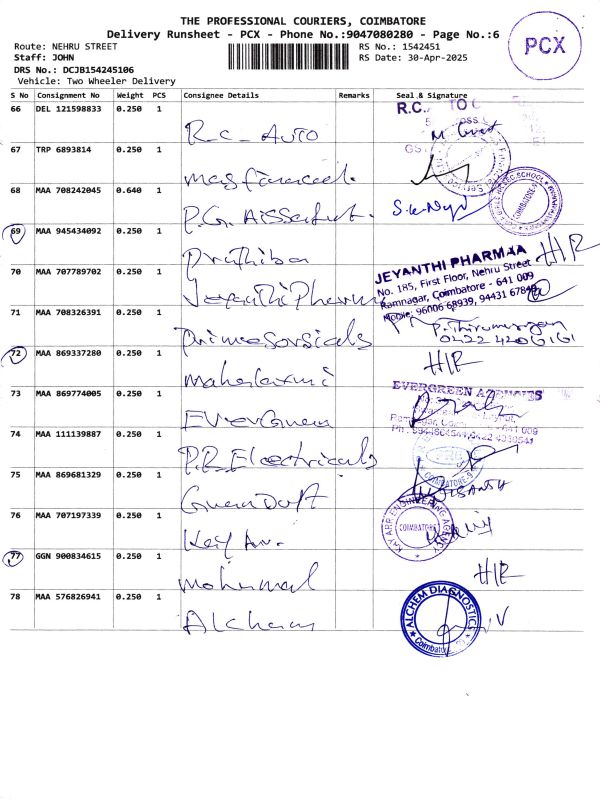 THE PROFESSIONAL COURIERS, COIMBATORE
Delivery Runsheet - PCX - Phone No.:9047080280 - Page No.:6
PCX
Route: NEHRU STREET
Staff: JOHN
RS No.: 1542451
DRS No.: DCJB154245106
RS Date: 30-Apr-2025
Vehicle: Two Wheeler Delivery
S No Consignment No Weight PCS Consignee Details Remarks Seal & Signature
66 DEL 121598833 0.250 1
R.C. Auto
R.C. TO
67 TRP 6893814 0.250 1
68 MAA 708242045 0.640 1
P.G.
COIMBATORE-9
69 MAA 945434092 0.250 1
Prathiba
H/R
70 MAA 707789702 0.250 1
Jeyanthi Pharma
JEYANTHI PHARMAA
No. 185, First Floor, Nehru Street
Ramnagar, Coimbatore - 641 009
Mobile: 96006 68939, 94431 67849
71 MAA 708326391 0.250 1
P. Thirumurugan
0422 4206161
72 MAA 869337280 0.250 1
Mahelaxmi
H/R
73 MAA 869774005 0.250 1
Evergreen
EVERGREEN AGENCIES
641 009
74 MAA 111139887 0.250 1
P.R. Electricals
COIMBATORE-9
75 MAA 869681329 0.250 1
76 MAA 707197339 0.250 1
KAY ARR ENGINEERING AGENCY
COIMBATORE
77 GGN 900834615 0.250 1
H/R
78 MAA 576826941 0.250 1
Alchem
ALCHEM DIAGNOSTICS
Coimbatore